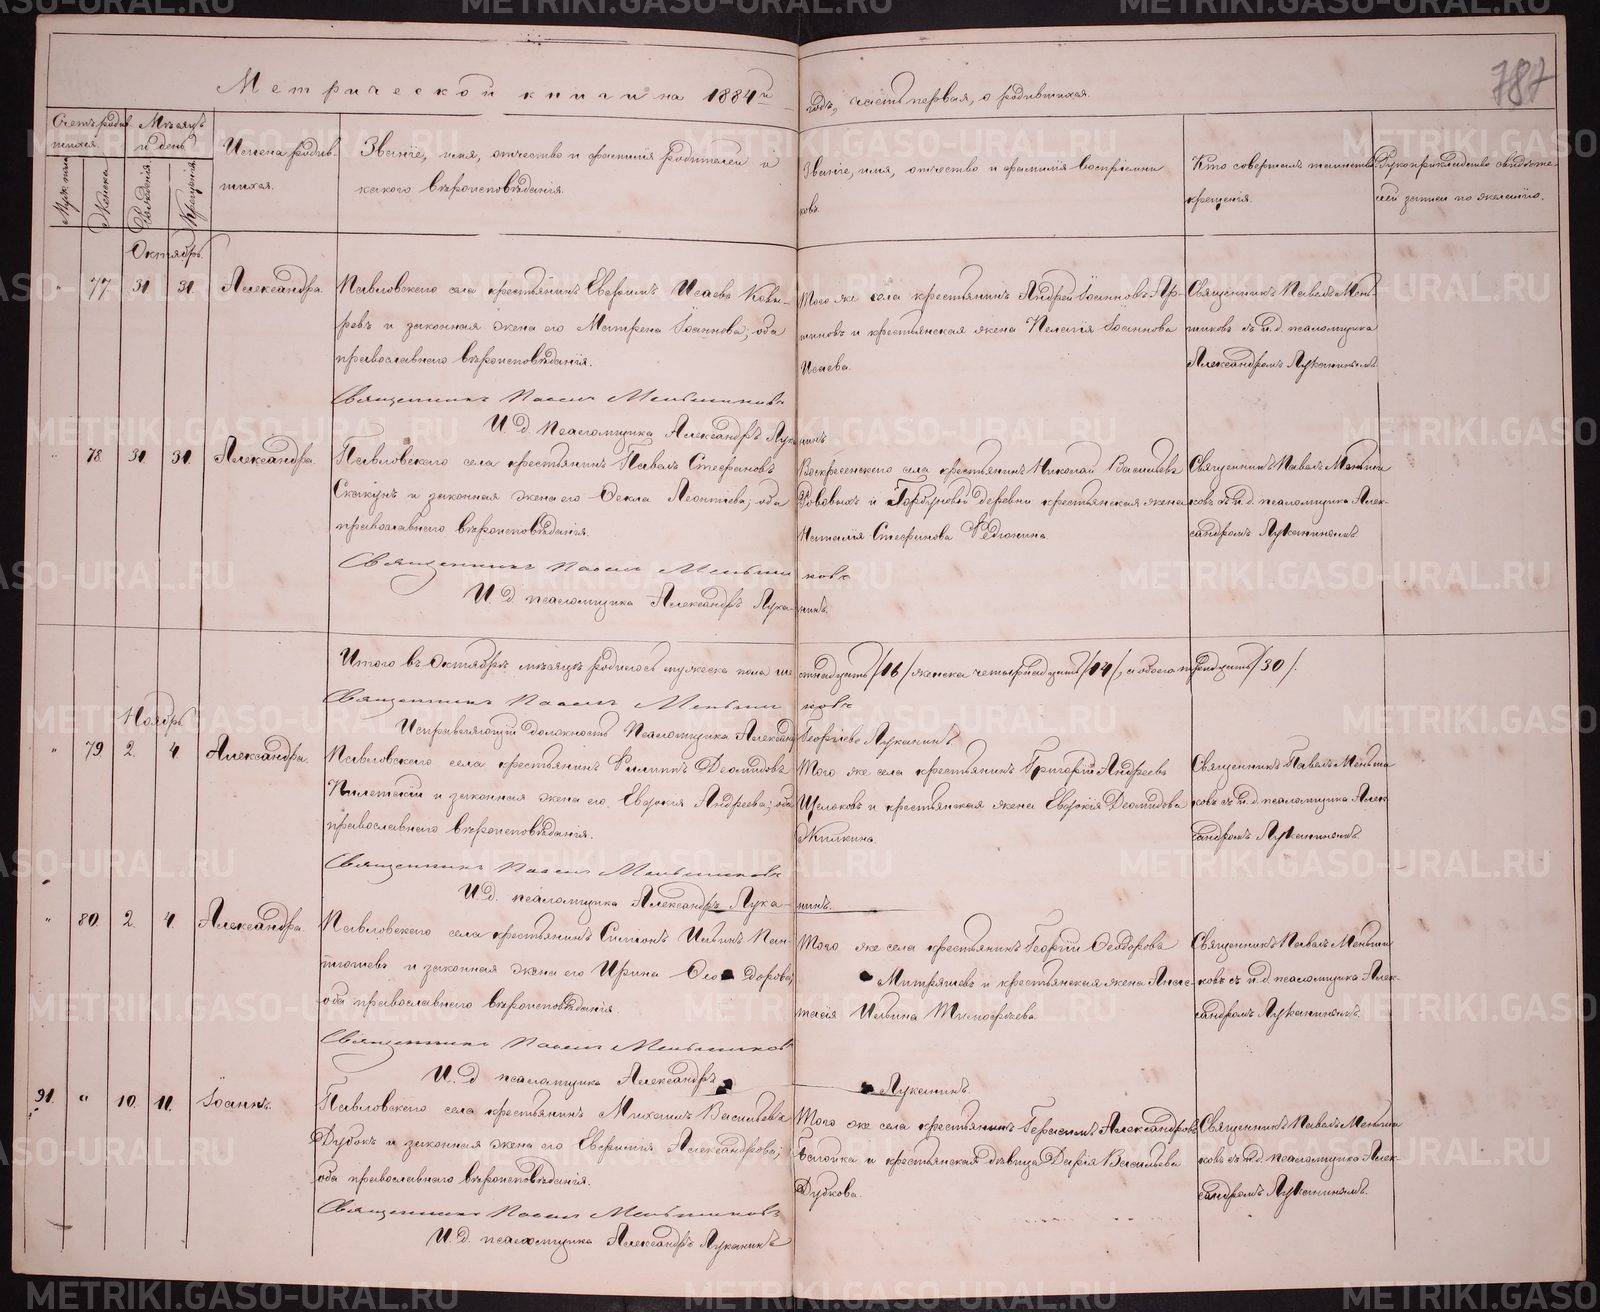 787
Метрической книги на 1884й годъ, часть первая, о родившихся.
Счетъ родив-
шихся.
Мужеска
Женска
Мѣсяцъ
и день
Рожденія.
Крещенія.
Имена родив-
шихся.
Званіе, имя, отчество и фамилія родителей и
какого вѣроисповѣданія.
Званіе, имя, отчество и фамилія воспріемни
ковъ.
Кто совершалъ таинство
крещенія.
Рукоприкладство свидѣте-
лей записи по желанію.
Октябрь.
" 77. 31. 31. Александра.
Павловскаго села крестьянинъ Евфимъ Исаевъ
и законная жена его Матрена Іоаннова; оба
православнаго вѣроисповѣданія.
Того же села крестьянинъ Андрей Іоанновъ
и крестьянская жена Пелагія Іоаннова
Исаева.
Священникъ Павелъ Мень-
шиковъ съ и.д. псаломщика
Александромъ Луканинымъ.
Священникъ Павелъ Меньшиковъ
И.д. псаломщика Александръ Луканинъ.
" 78. 31. 31. Александра.
Павловскаго села крестьянинъ Павелъ Стефановъ
Скакунъ и законная жена его Ѳекла Леонтьева; оба
православнаго вѣроисповѣданія.
Воскресенскаго села крестьянинъ Николай Васильевъ
и Горбуновой деревни крестьянская жена
Наталія Стефанова Федюнина.
Священникъ Павелъ Меньши
ковъ съ и.д. псаломщика Алек-
сандромъ Луканинымъ.
Священникъ Павелъ Меньшиковъ
И.д. псаломщика Александръ Луканинъ.
Итого въ Октябрѣ мѣсяцѣ родилось мужеска пола шестнадцать /16/ женска четырнадцать /14/, а обоего тридцать /30/.
Священникъ Павелъ Меньшиковъ
Исправляющій должность Псаломщика Александръ Георгіевъ Луканинъ
Ноябрь
" 79 2. 4. Александра.
Павловскаго села крестьянинъ Филиппъ Деомидовъ
Пилетскій и законная жена его Евдокія Андреева; оба
православнаго вѣроисповѣданія.
Того же села крестьянинъ Григорій Андреевъ
Щелоковъ и крестьянская жена Евдокія Деомидова
Жилкина.
Священникъ Павелъ Меньши
ковъ съ и.д. псаломщика Алек
сандромъ Луканинымъ.
Священникъ Павелъ Меньшиковъ
И.д. псаломщика Александръ Луканинъ.
" 80. 2. 4. Александра.
Павловскаго села крестьянинъ Симіонъ Ильинъ Пан-
тюшевъ и законная жена его Ирина Ѳеодорова;
оба православнаго вѣроисповѣданія.
Того же села крестьянинъ Георгій Ѳеодоровъ
Митряшевъ и крестьянская жена Анас-
тасія Ильина Тимофѣева.
Священникъ Павелъ Меньши
ковъ съ и.д. псаломщика Алек-
сандромъ Луканинымъ.
Священникъ Павелъ Меньшиковъ
И.д. псаломщика Александръ Луканинъ.
91. " 10. 11. Іоаннъ.
Павловскаго села крестьянинъ Михаилъ Васильевъ
Дубокъ и законная жена его Евфимія Александрова;
оба православнаго вѣроисповѣданія.
Того же села крестьянинъ Герасимъ Александровъ
и крестьянская дѣвица Дарія Васильева
Дубкова.
Священникъ Павелъ Меньши
ковъ съ и.д. псаломщика Алек-
сандромъ Луканинымъ.
Священникъ Павелъ Меньшиковъ
И.д. псаломщика Александръ Луканинъ
METRIKI.GASO-URAL.RU